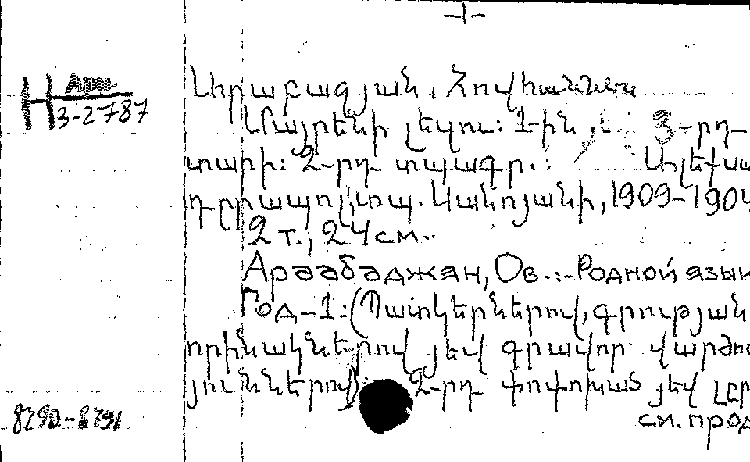 Н Арм
3-2787
Առաքելյան, Հովհաննես
Մայրենի լեզու: 1-ին և 3-րդ
տարի: 2-րդ տպագր.: Ալեքսա
դրրապոլ տպ. Սանոյանի, 1909-1904
2 т., 24 см.
Арабаджан, Ов. :-Родной язык
Год-1: (Պատկերներով, գրության
օրինակներով յեվ գրավոր վարժու
յուններով 2-րդ փոփոխած յեվ լըր
8290-8291
см. прод